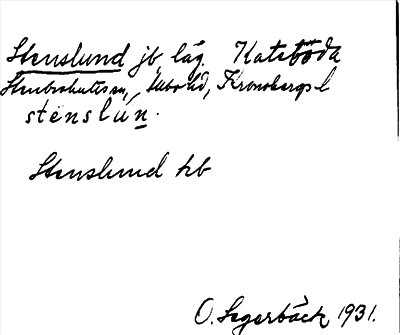 Stenslund jb, läg. Kateböda
Stenbrohults sn, Allbo hd, Kronobergs l
stenslún.
Stenslund kb
O. Segerbäck 1931.